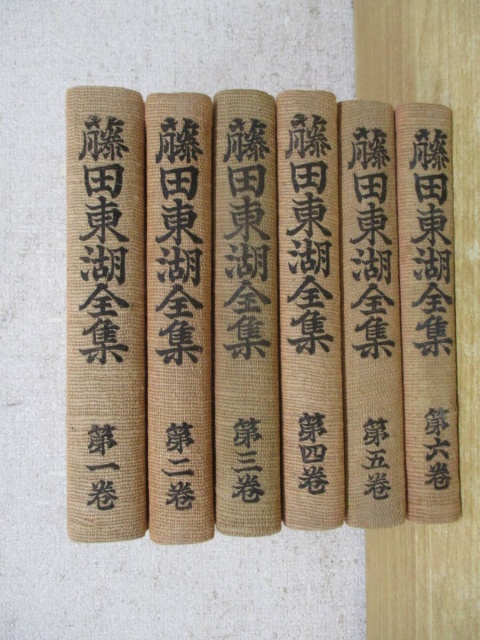 藤田東湖全集 第一卷
藤田東湖全集 第二卷
藤田東湖全集 第三卷
藤田東湖全集 第四卷
藤田東湖全集 第五卷
藤田東湖全集 第六卷